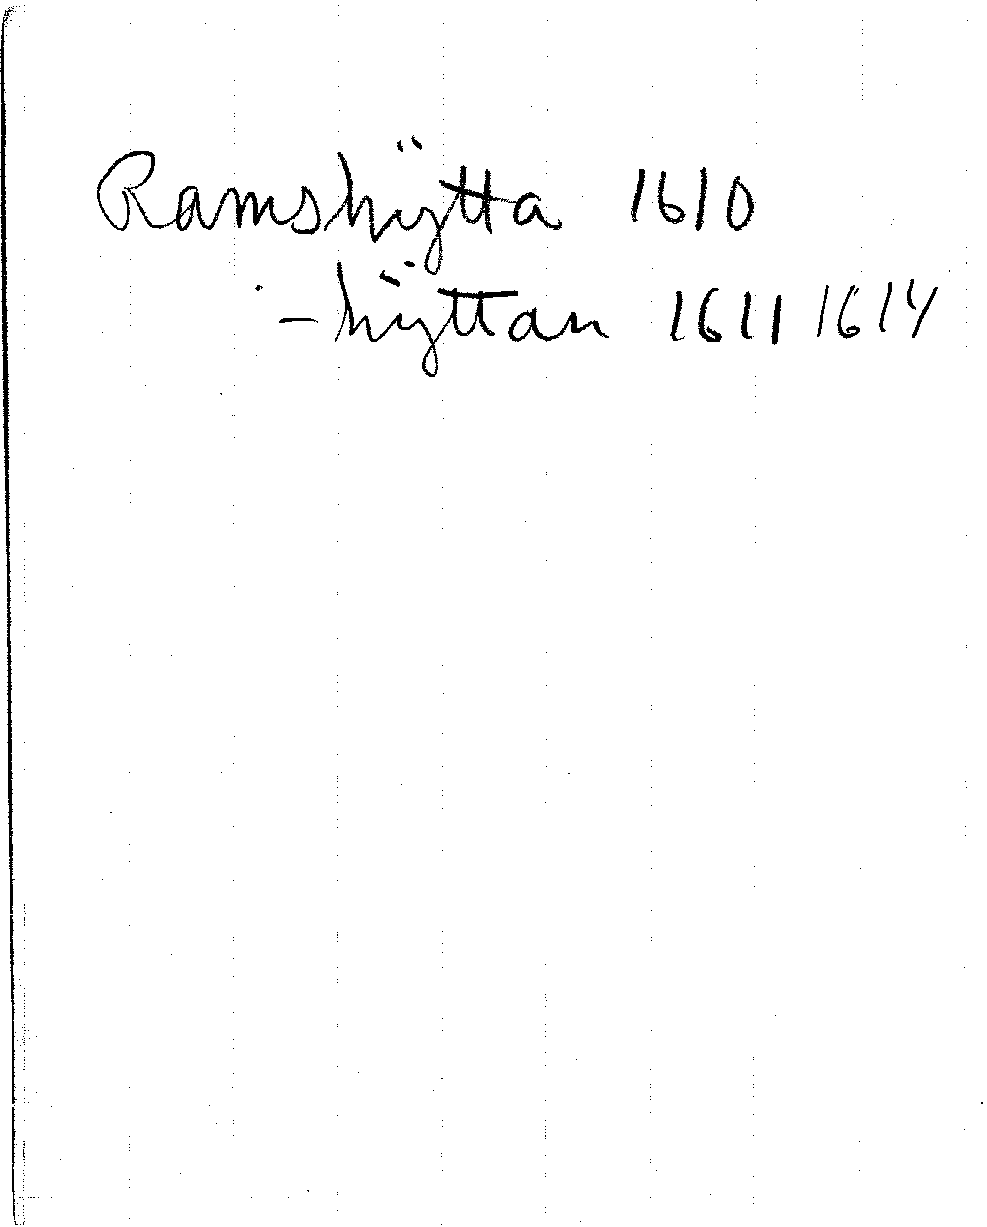 Ramshÿtta 1610
-hÿttan 1611 1614